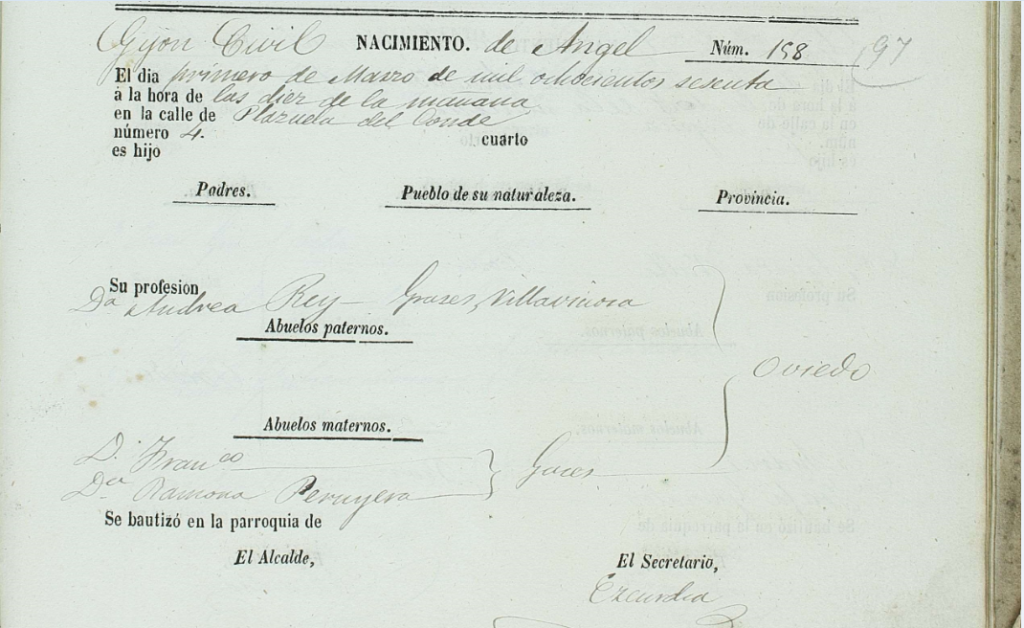 Gijon Civil NACIMIENTO. de Angel Núm. 158 97
El dia primero de Marzo de mil ochocientos sesenta
á la hora de las diez de la mañana
en la calle de Plazuela del Conde
número 4. cuarto
es hijo
Padres. Pueblo de su naturaleza. Provincia.
Su profesion
Da Andrea Rey Grases, Villaviciosa
Abuelos paternos.
Oviedo
Abuelos maternos.
D. Franco
Da Ramona Peruyera
Se bautizó en la parroquia de
El Alcalde, El Secretario,
Ezcurdia